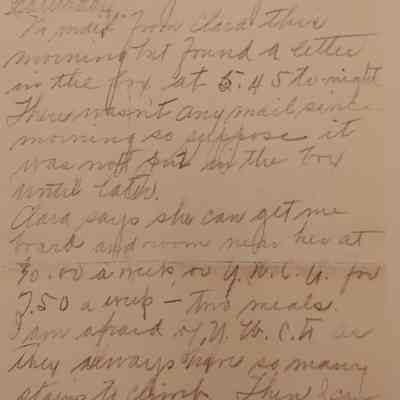 Saturday
No mail from Clara this
morning but found a letter
in the box at 5.45 to night
There wasn't any mail since
morning so suppose it
was not put in the box
until later.
Clara says she can get me
board and room near her at
a week, or Y.W.C.A. for
7.50 a week - two meals.
I am afraid of Y.W.C.A as
they always have so many
stairs to climb. Then I can